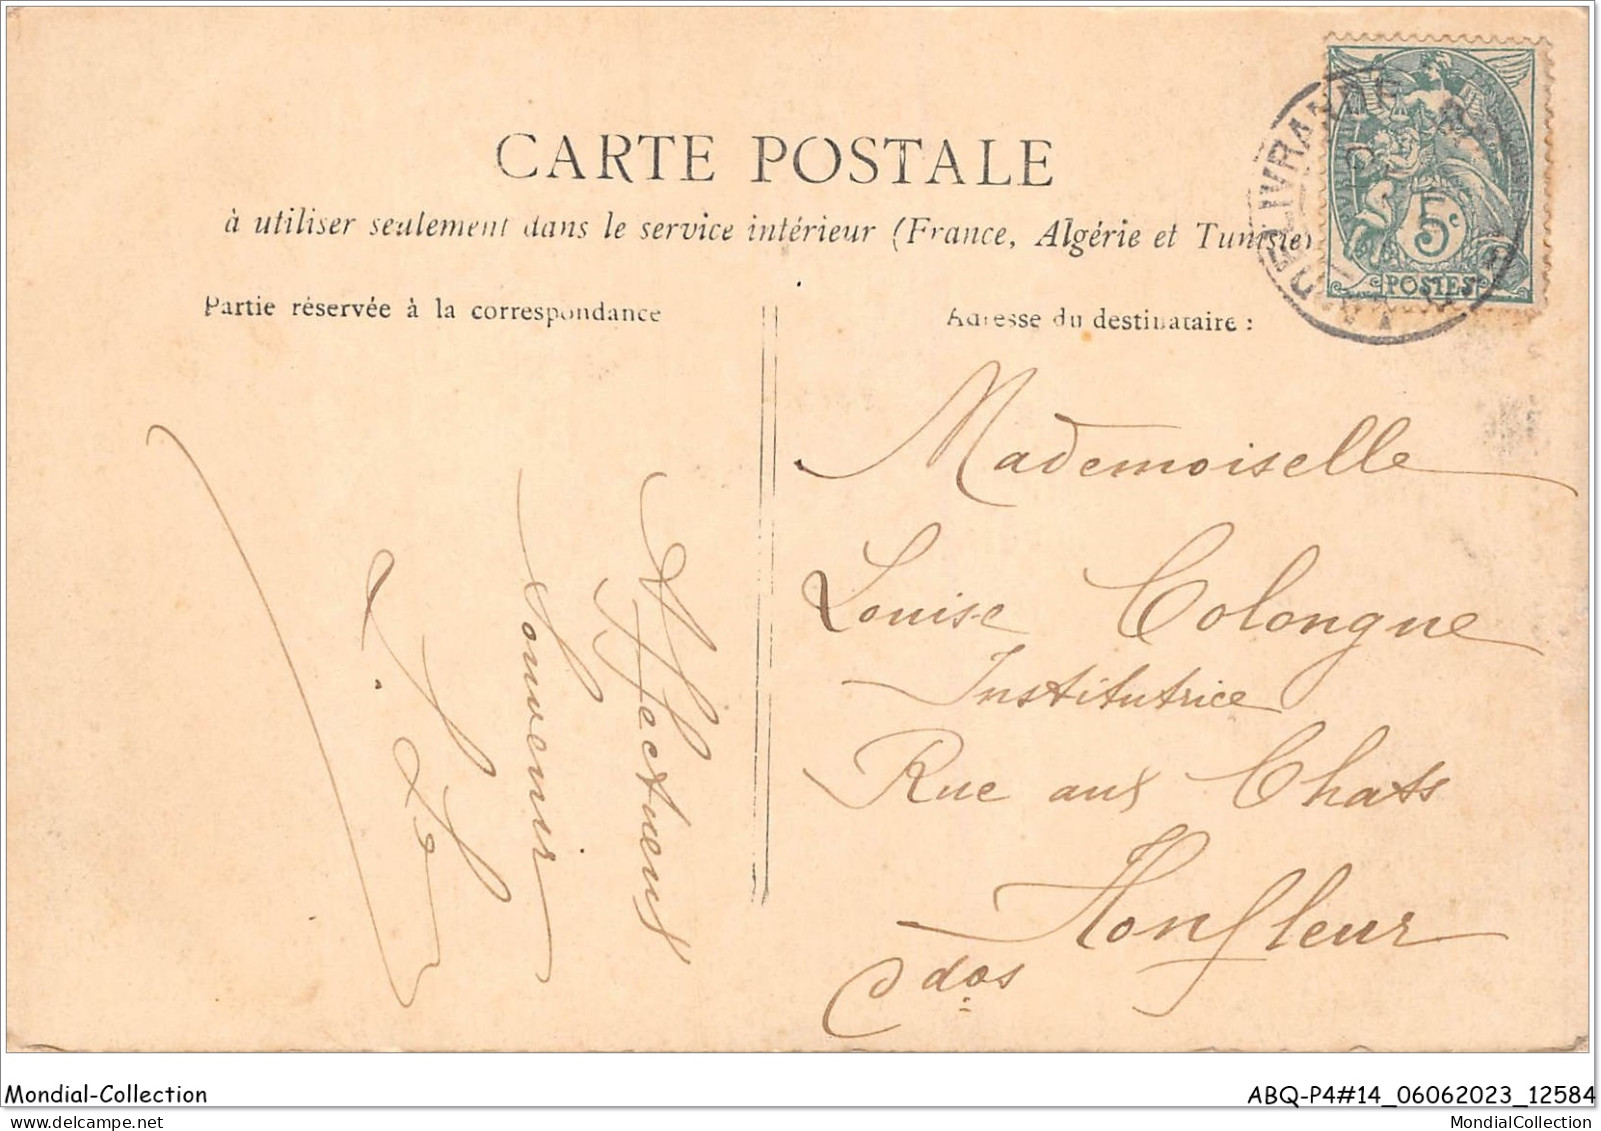 CARTE POSTALE
à utiliser seulement dans le service intérieur (France, Algérie et Tunisie)
Partie réservée à la correspondance
Adresse du destinataire :
5c
POSTES
DÉLIVRANDE
Affectueux
Souvenir
Mademoiselle
Louise Colongne
Institutrice
Rue aux Chats
Honfleur
Cdos
Mondial-Collection
ABQ-P4#14_06062023_12584
MondialCollection